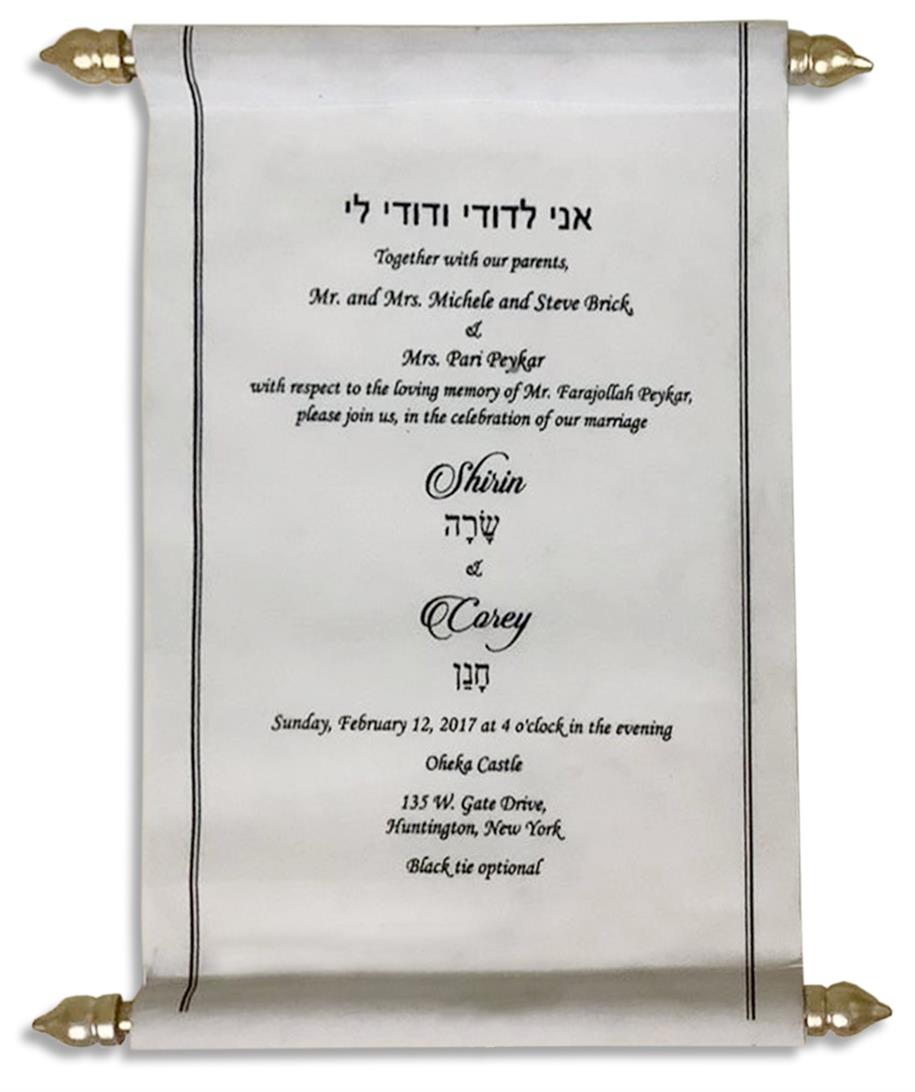 אני לדודי ודודי לי
Together with our parents,
Mr. and Mrs. Michele and Steve Brick,
&
Mrs. Pari Peykar
with respect to the loving memory of Mr. Farajollah Peykar,
please join us, in the celebration of our marriage
Shirin
שָׂרָה
&
Corey
חָנַן
Sunday, February 12, 2017 at 4 o'clock in the evening
Oheka Castle
135 W. Gate Drive,
Huntington, New York
Black tie optional